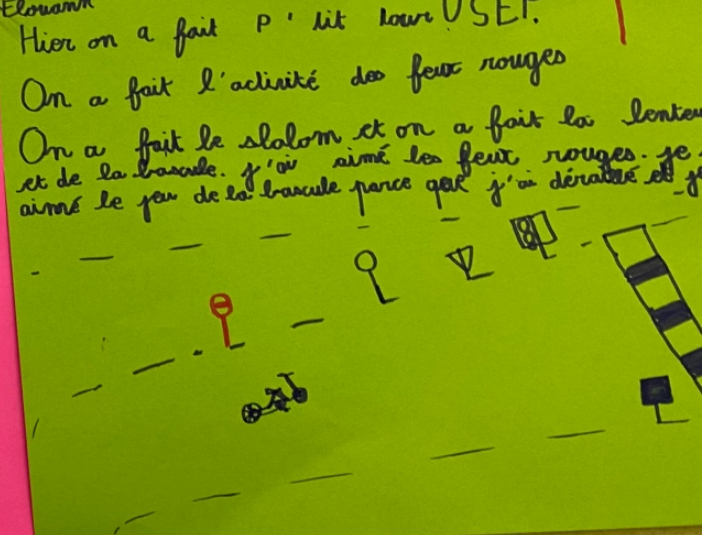 Elouann
Hier on a fait P'tit tour USEP.
On a fait l'activité des feux rouges
On a fait le slalom et on a fait la lenteu
et de la bascule. j'ai aimé les feux rouges. je
aimé le jeu de la bascule parce que j'ai déraillé et je